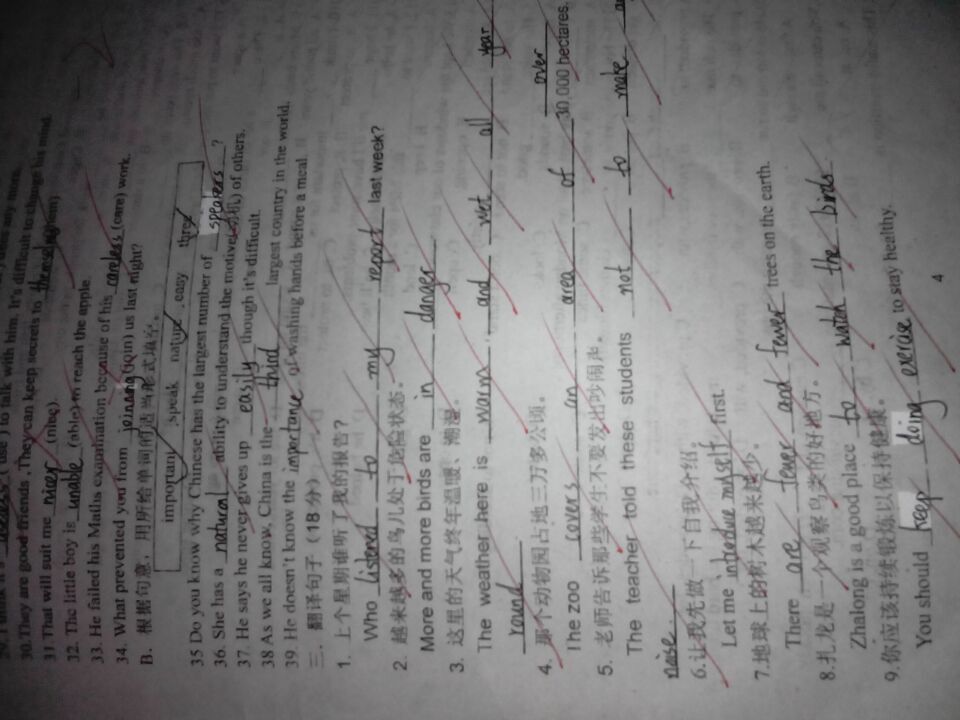 useless (use) to talk with him. It's difficult to change his mind.
30. They are good friends. They can keep secrets to themselves
31. That will suit me nicer (nice).
32. The little boy is unable (able) to reach the apple.
33. He failed his Maths examination because of his careless (care) work.
34. What prevented you from joinong (join) us last night?
B. 根据句意，用所给单词的适当形式填空。
important, speak nature, easy three
35 Do you know why Chinese has the largest number of speakers ?
36. She has a natural ability to understand the motive(动机) of others.
37. He says he never gives up easily though it's difficult.
38 As we all know, China is the third largest country in the world.
39. He doesn't know the importance of washing hands before a meal.
三. 翻译句子（18分）
1. 上个星期谁听了我的报告？
Who listened to my report last week?
2. 越来越多的鸟儿处于危险状态。
More and more birds are in danger
3. 这里的天气终年温暖、潮湿。
The weather here is warm and wet all year
round
4. 那个动物园占地三万多公顷。
The zoo covers an area of over 30,000 hectares.
5. 老师告诉那些学生不要发出吵闹声。
The teacher told these students not to make
noise.
6.让我先做一下自我介绍。
Let me introduce myself first.
7.地球上的树木越来越少。
There are fewer and fewer trees on the earth.
8.扎龙是一个观察鸟类的好地方。
Zhalong is a good place to watch the birds
9.你应该持续锻炼以保持健康。
You should keep doing exercise to stay healthy.
4